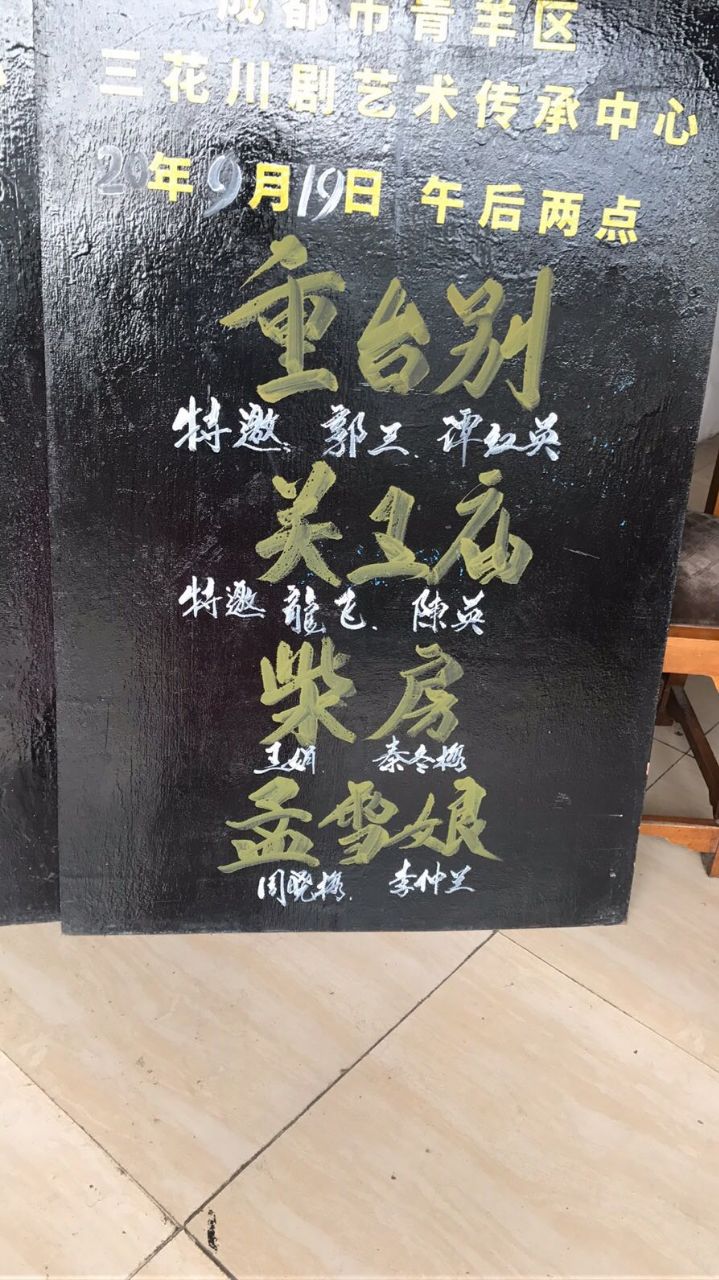 成都市青羊区
三花川剧艺术传承中心
20年9月19日 午后两点
重台别
特邀、郭三、谭红英
关王庙
特邀 龍飞、陳英
柴房
王娟 秦冬梅
孟雪娘
周晓梅、李仲兰